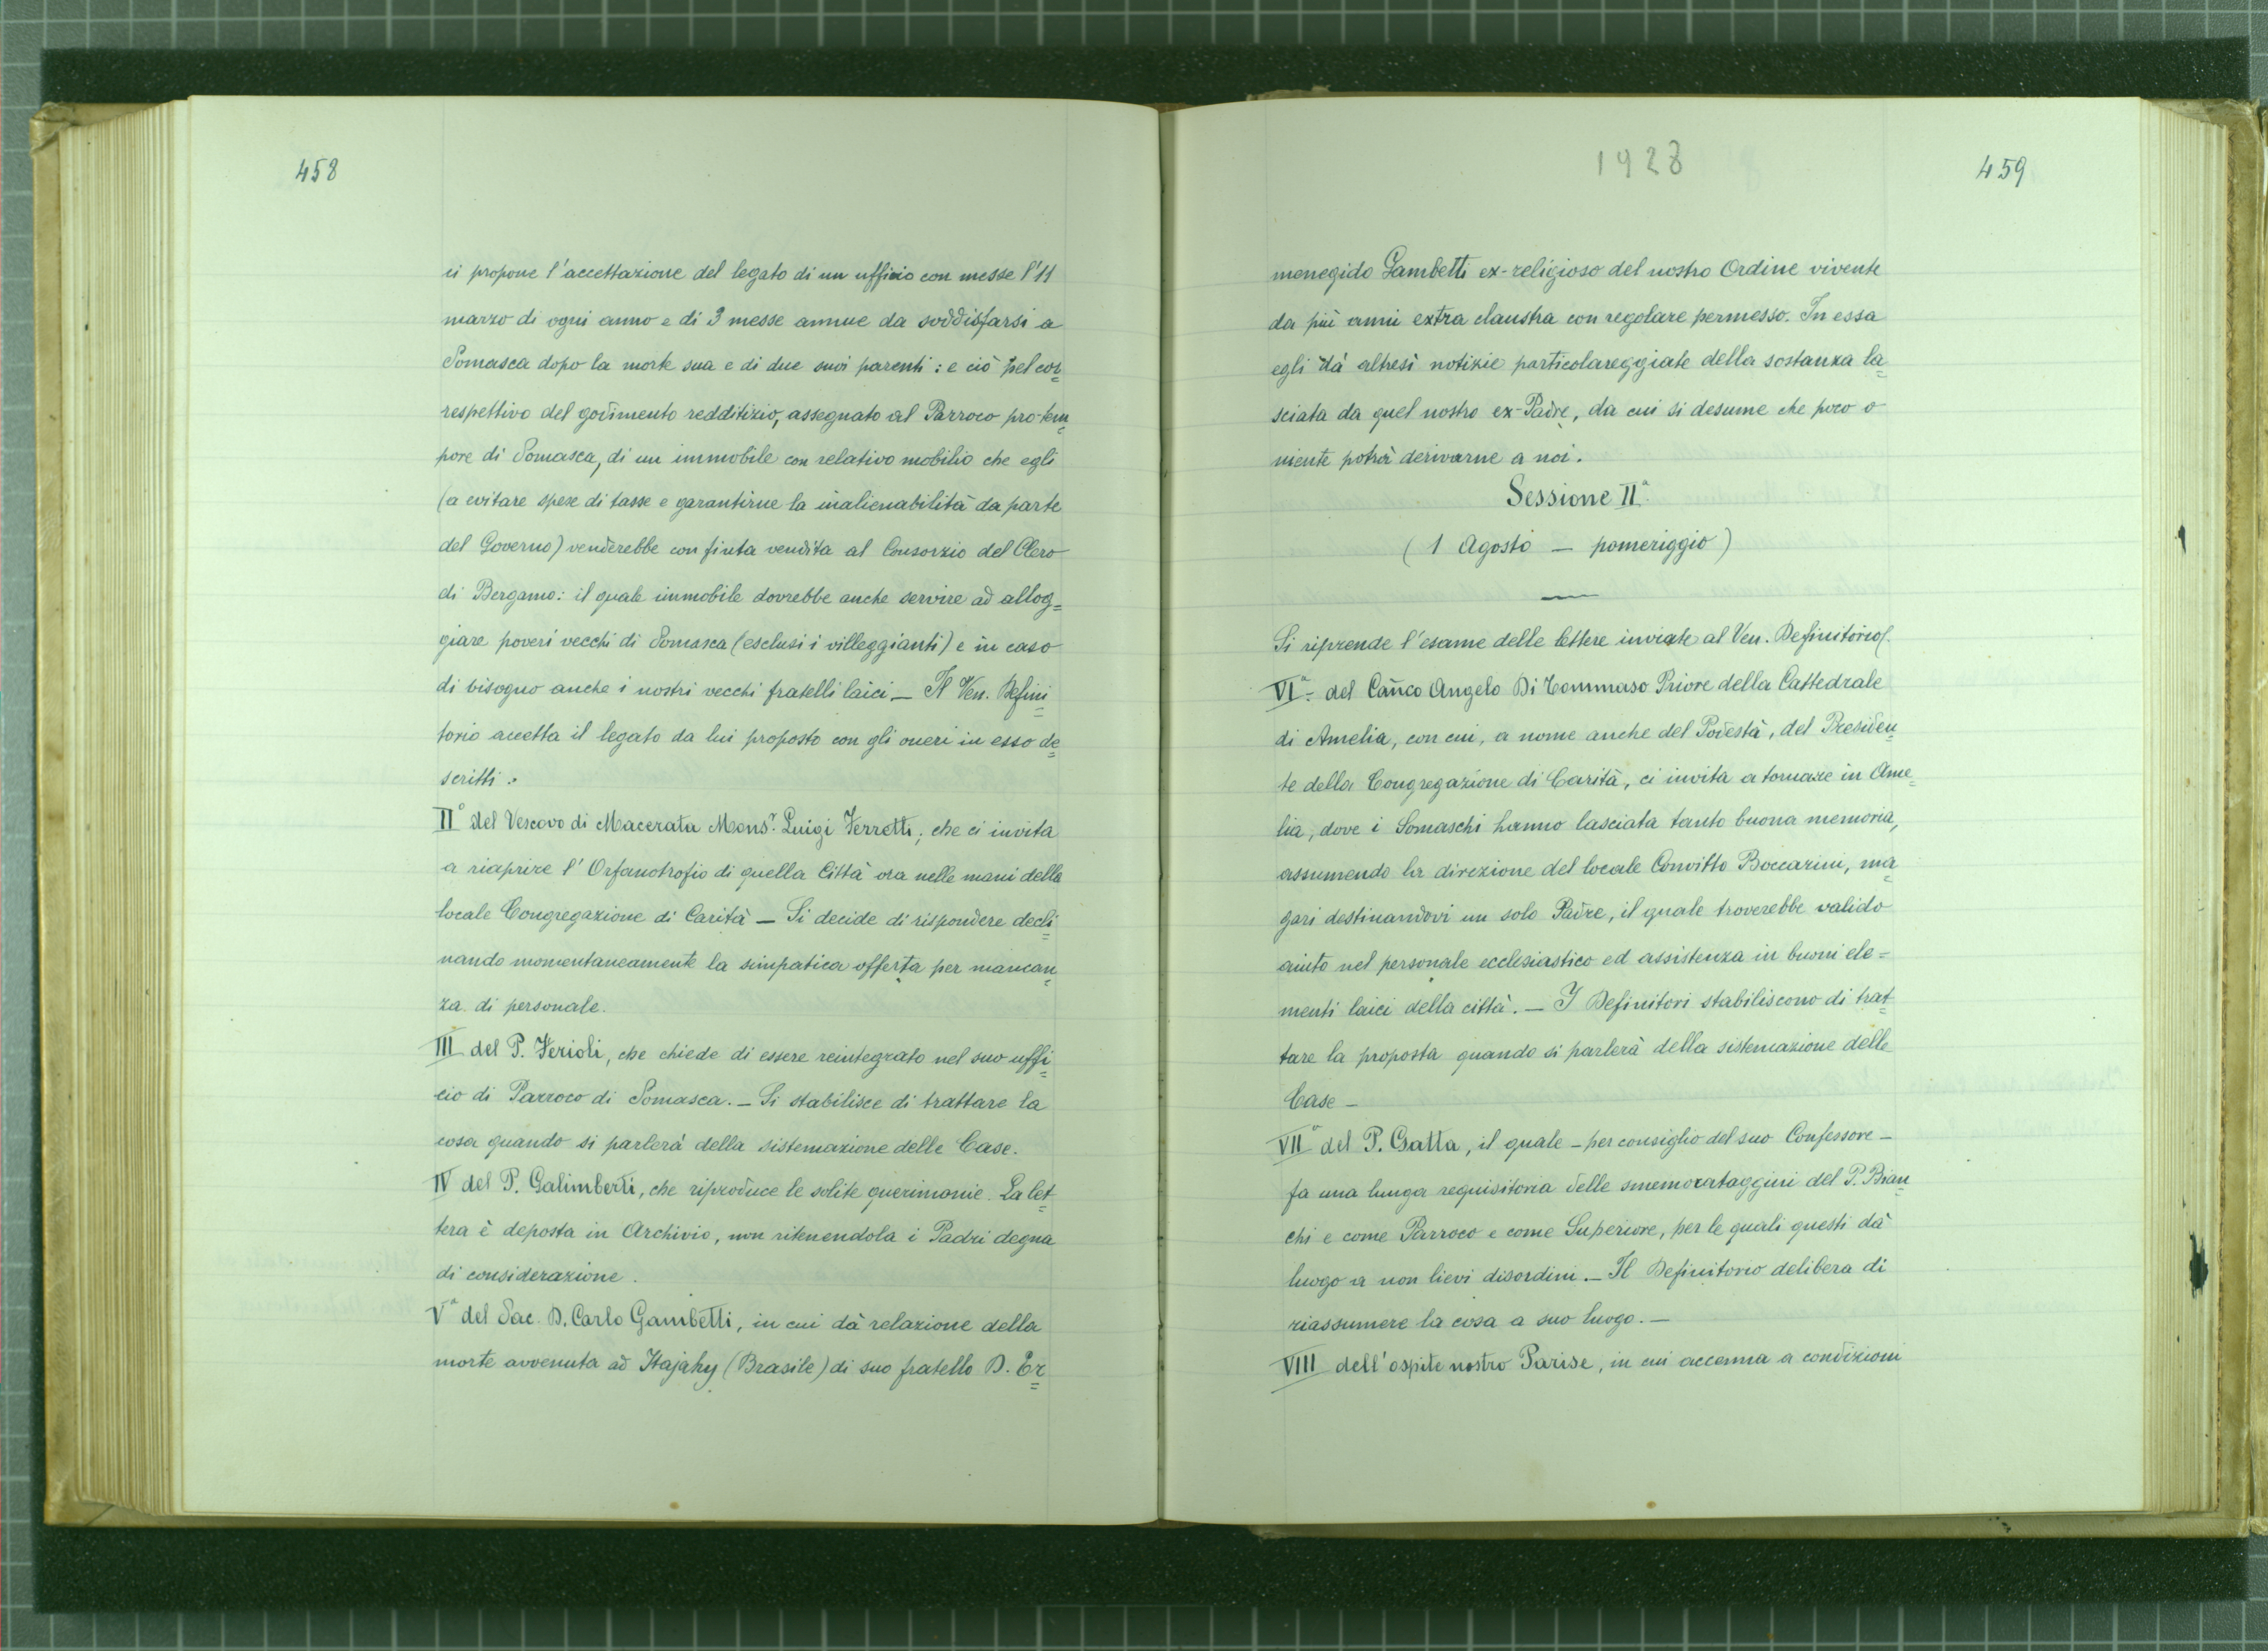 458
ci propone l'accettazione del legato di un uffizio con messe l'11
marzo di ogni anno e di 3 messe annue da soddisfarsi a
Somasca dopo la morte sua e di due suoi parenti: e ciò pel cor=
respettivo del godimento redditizio, assegnato al Parroco pro-tem=
pore di Somasca, di un immobile con relativo mobilio che egli
(a evitare spese di tasse e garantirne la inalienabilità da parte
del Governo) venderebbe con finta vendita al Consorzio del Clero
di Bergamo: il quale immobile dovrebbe anche servire ad allog=
giare poveri vecchi di Somasca (esclusi i villeggianti) e in caso
di bisogno anche i nostri vecchi fratelli laici — Il Ven. Defini=
torio accetta il legato da lui proposto con gli oneri in esso de=
scritti.
IIº del Vescovo di Macerata Monsr. Luigi Ferretti, che ci invita
a riaprire l'Orfanotrofio di quella Città ora nelle mani della
locale Congregazione di Carità — Si decide di rispondere decli=
nando momentaneamente la simpatica offerta per mancan=
za di personale.
III del P. Ferioli, che chiede di essere reintegrato nel suo uffi=
cio di Parroco di Somasca. — Si stabilisce di trattare la
cosa quando si parlerà della sistemazione delle Case.
IV del P. Galimberti, che riproduce le solite querimonie. La let=
tera è deposta in Archivio, non ritenendola i Padri degna
di considerazione.
Vª del Sac. D. Carlo Gambetti, in cui dà relazione della
morte avvenuta ad Itajahy (Brasile) di suo fratello D. Er=
1928
459
menegido Gambetti ex-religioso del nostro Ordine vivente
da più anni extra claustra con regolare permesso. In essa
egli dà altresì notizie particolareggiate della sostanza la=
sciata da quel nostro ex-Padre, da cui si desume che poco o
niente potrà derivarne a noi.
Sessione IIª
(1 Agosto — pomeriggio)
Si riprende l'esame delle lettere inviate al Ven. Definitorio.
VIª. del Can̄co Angelo Di Tommaso Priore della Cattedrale
di Amelia, con cui, a nome anche del Podestà, del Presiden=
te della Congregazione di Carità, ci invita a tornare in Ame=
lia, dove i Somaschi hanno lasciata tanto buona memoria,
assumendo la direzione del locale Convitto Boccarini, ma=
gari destinandovi un solo Padre, il quale troverebbe valido
aiuto nel personale ecclesiastico ed assistenza in buoni ele=
menti laici della città. — I Definitori stabiliscono di trat=
tare la proposta quando si parlerà della sistemazione delle
Case —
VIIª del P. Gatta, il quale — per consiglio del suo Confessore —
fa una lunga requisitoria delle smemorataggini del P. Bian=
chi e come Parroco e come Superiore, per le quali questi dà
luogo a non lievi disordini. — Il Definitorio delibera di
riassumere la cosa a suo luogo. —
VIII dell'ospite nostro Parise, in cui accenna a condizioni